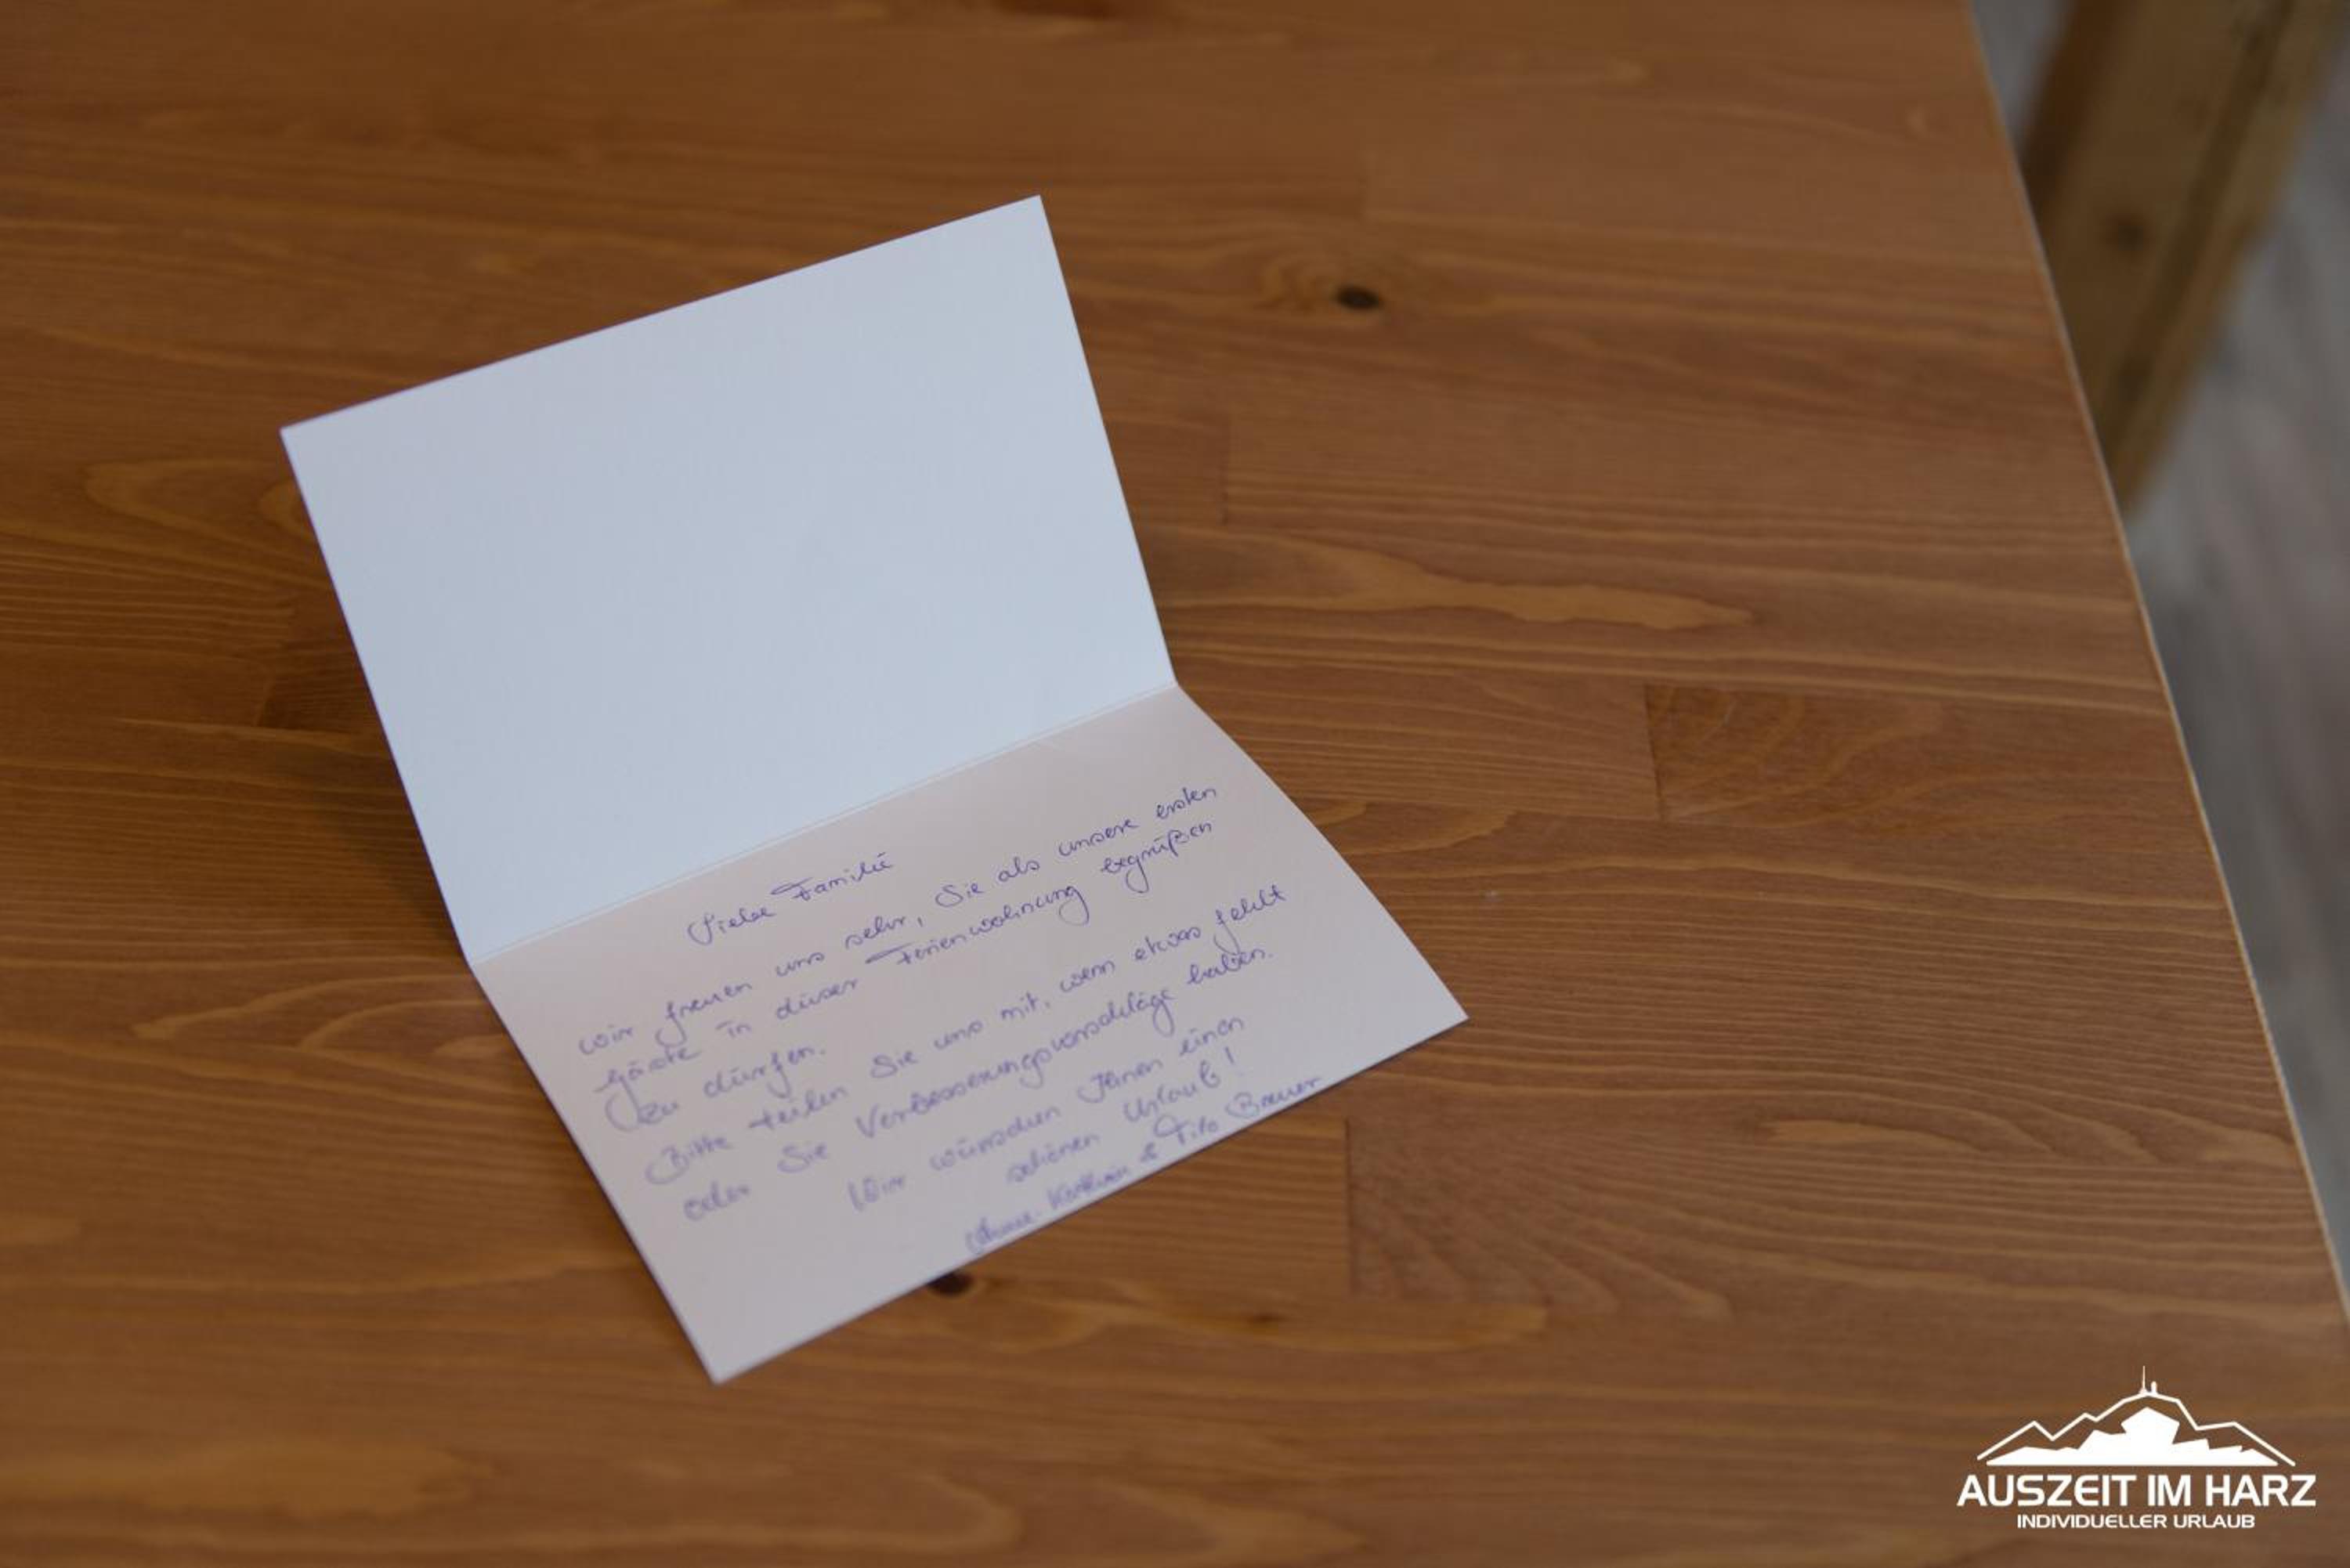 Liebe Familie
wir freuen uns sehr, Sie als unsere ersten
Gäste in dieser Ferienwohnung begrüßen
zu dürfen.
Bitte teilen Sie uns mit, wenn etwas fehlt
oder Sie Verbesserungsvorschläge haben.
Wir wünschen Ihnen einen
schönen Urlaub!
& Tilo Breuer
AUSZEIT IM HARZ
INDIVIDUELLER URLAUB